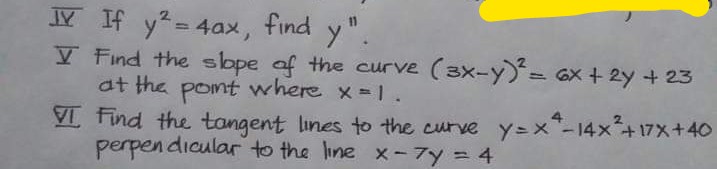 IV If y² = 4ax, find y".
V Find the slope of the curve (3x-y)² = 6x + 2y + 23
at the point where x = 1.
VI Find the tangent lines to the curve y = x⁴ - 14x² + 17x + 40
perpendicular to the line x - 7y = 4